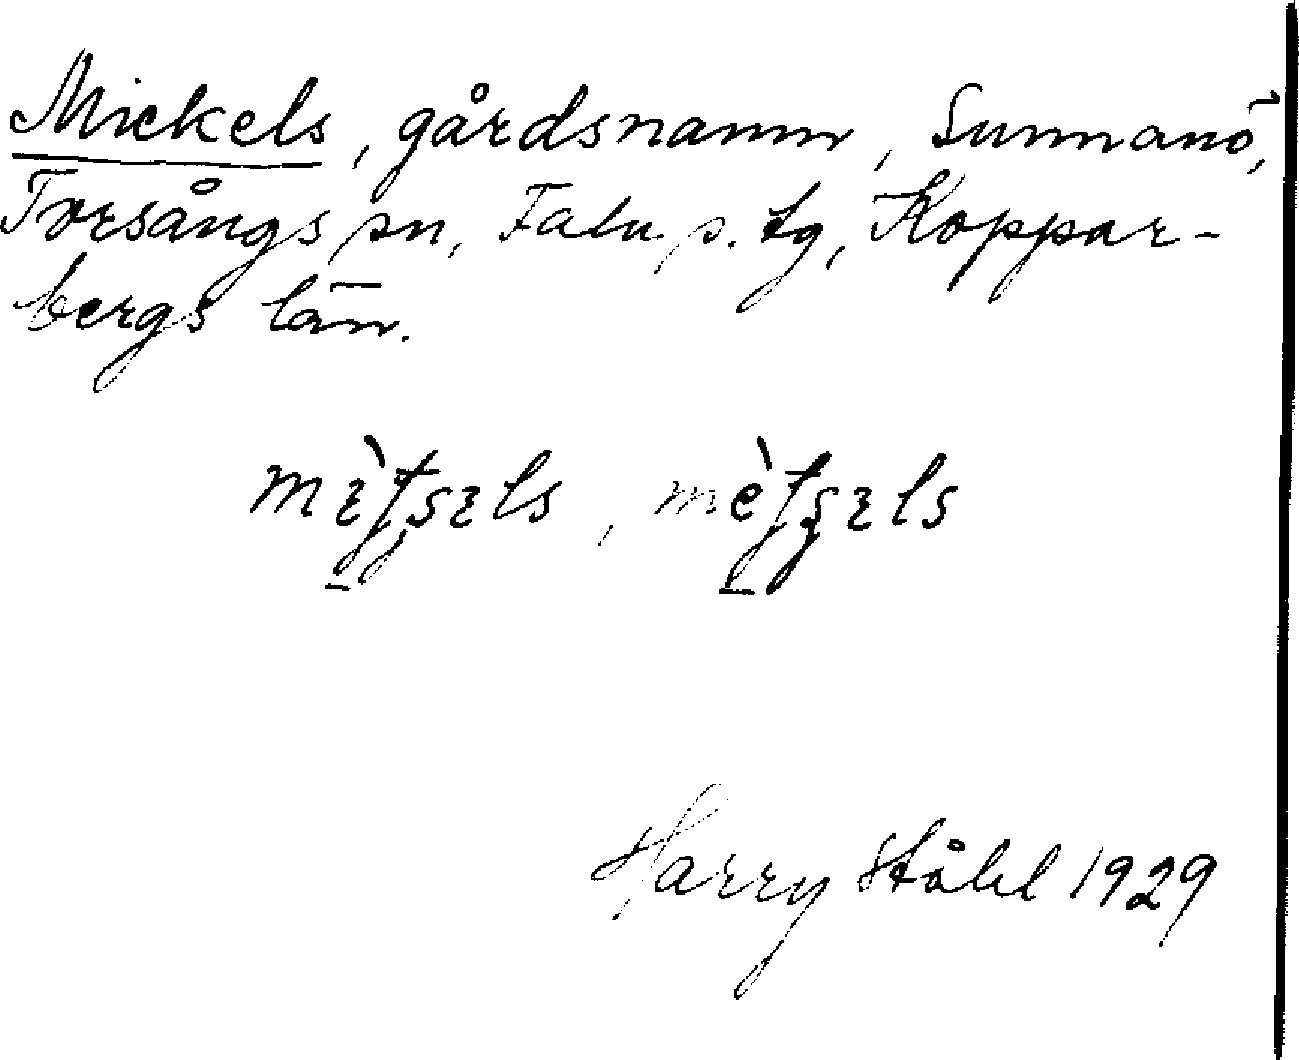 Mickels, gårdsnamn, Sunnanö,
Torsångs sn, Falu s. tg, Koppar-
bergs län.
Harry Ståhl 1929